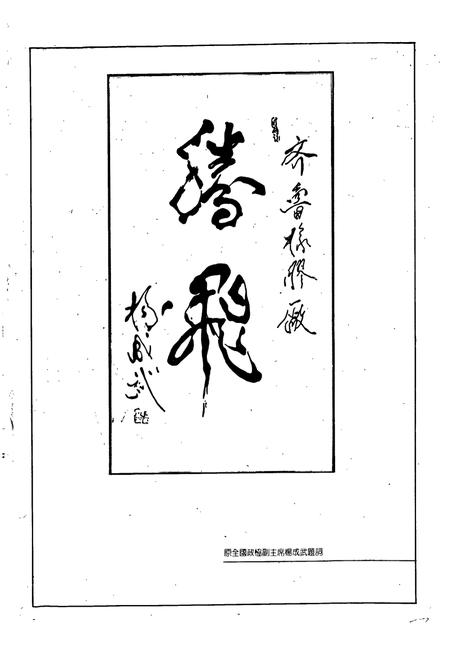 齐鲁橡胶厰
腾飛
楊成武
原全國政協副主席楊成武題詞